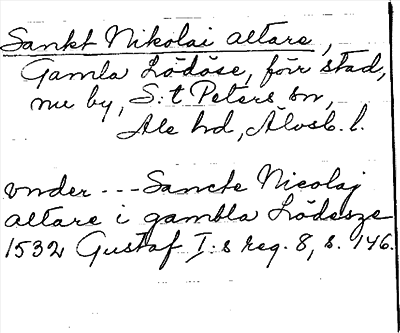 Sankt Nikolai altare,
Gamla Lödöse, förr stad,
nu by, S:t Peters sn,
Ale hd, Älvsb. l.
vnder --- Sancte Nicolaj
altare i gambla Lödesze
1532 Gustaf I:s reg. 8, s. 146.